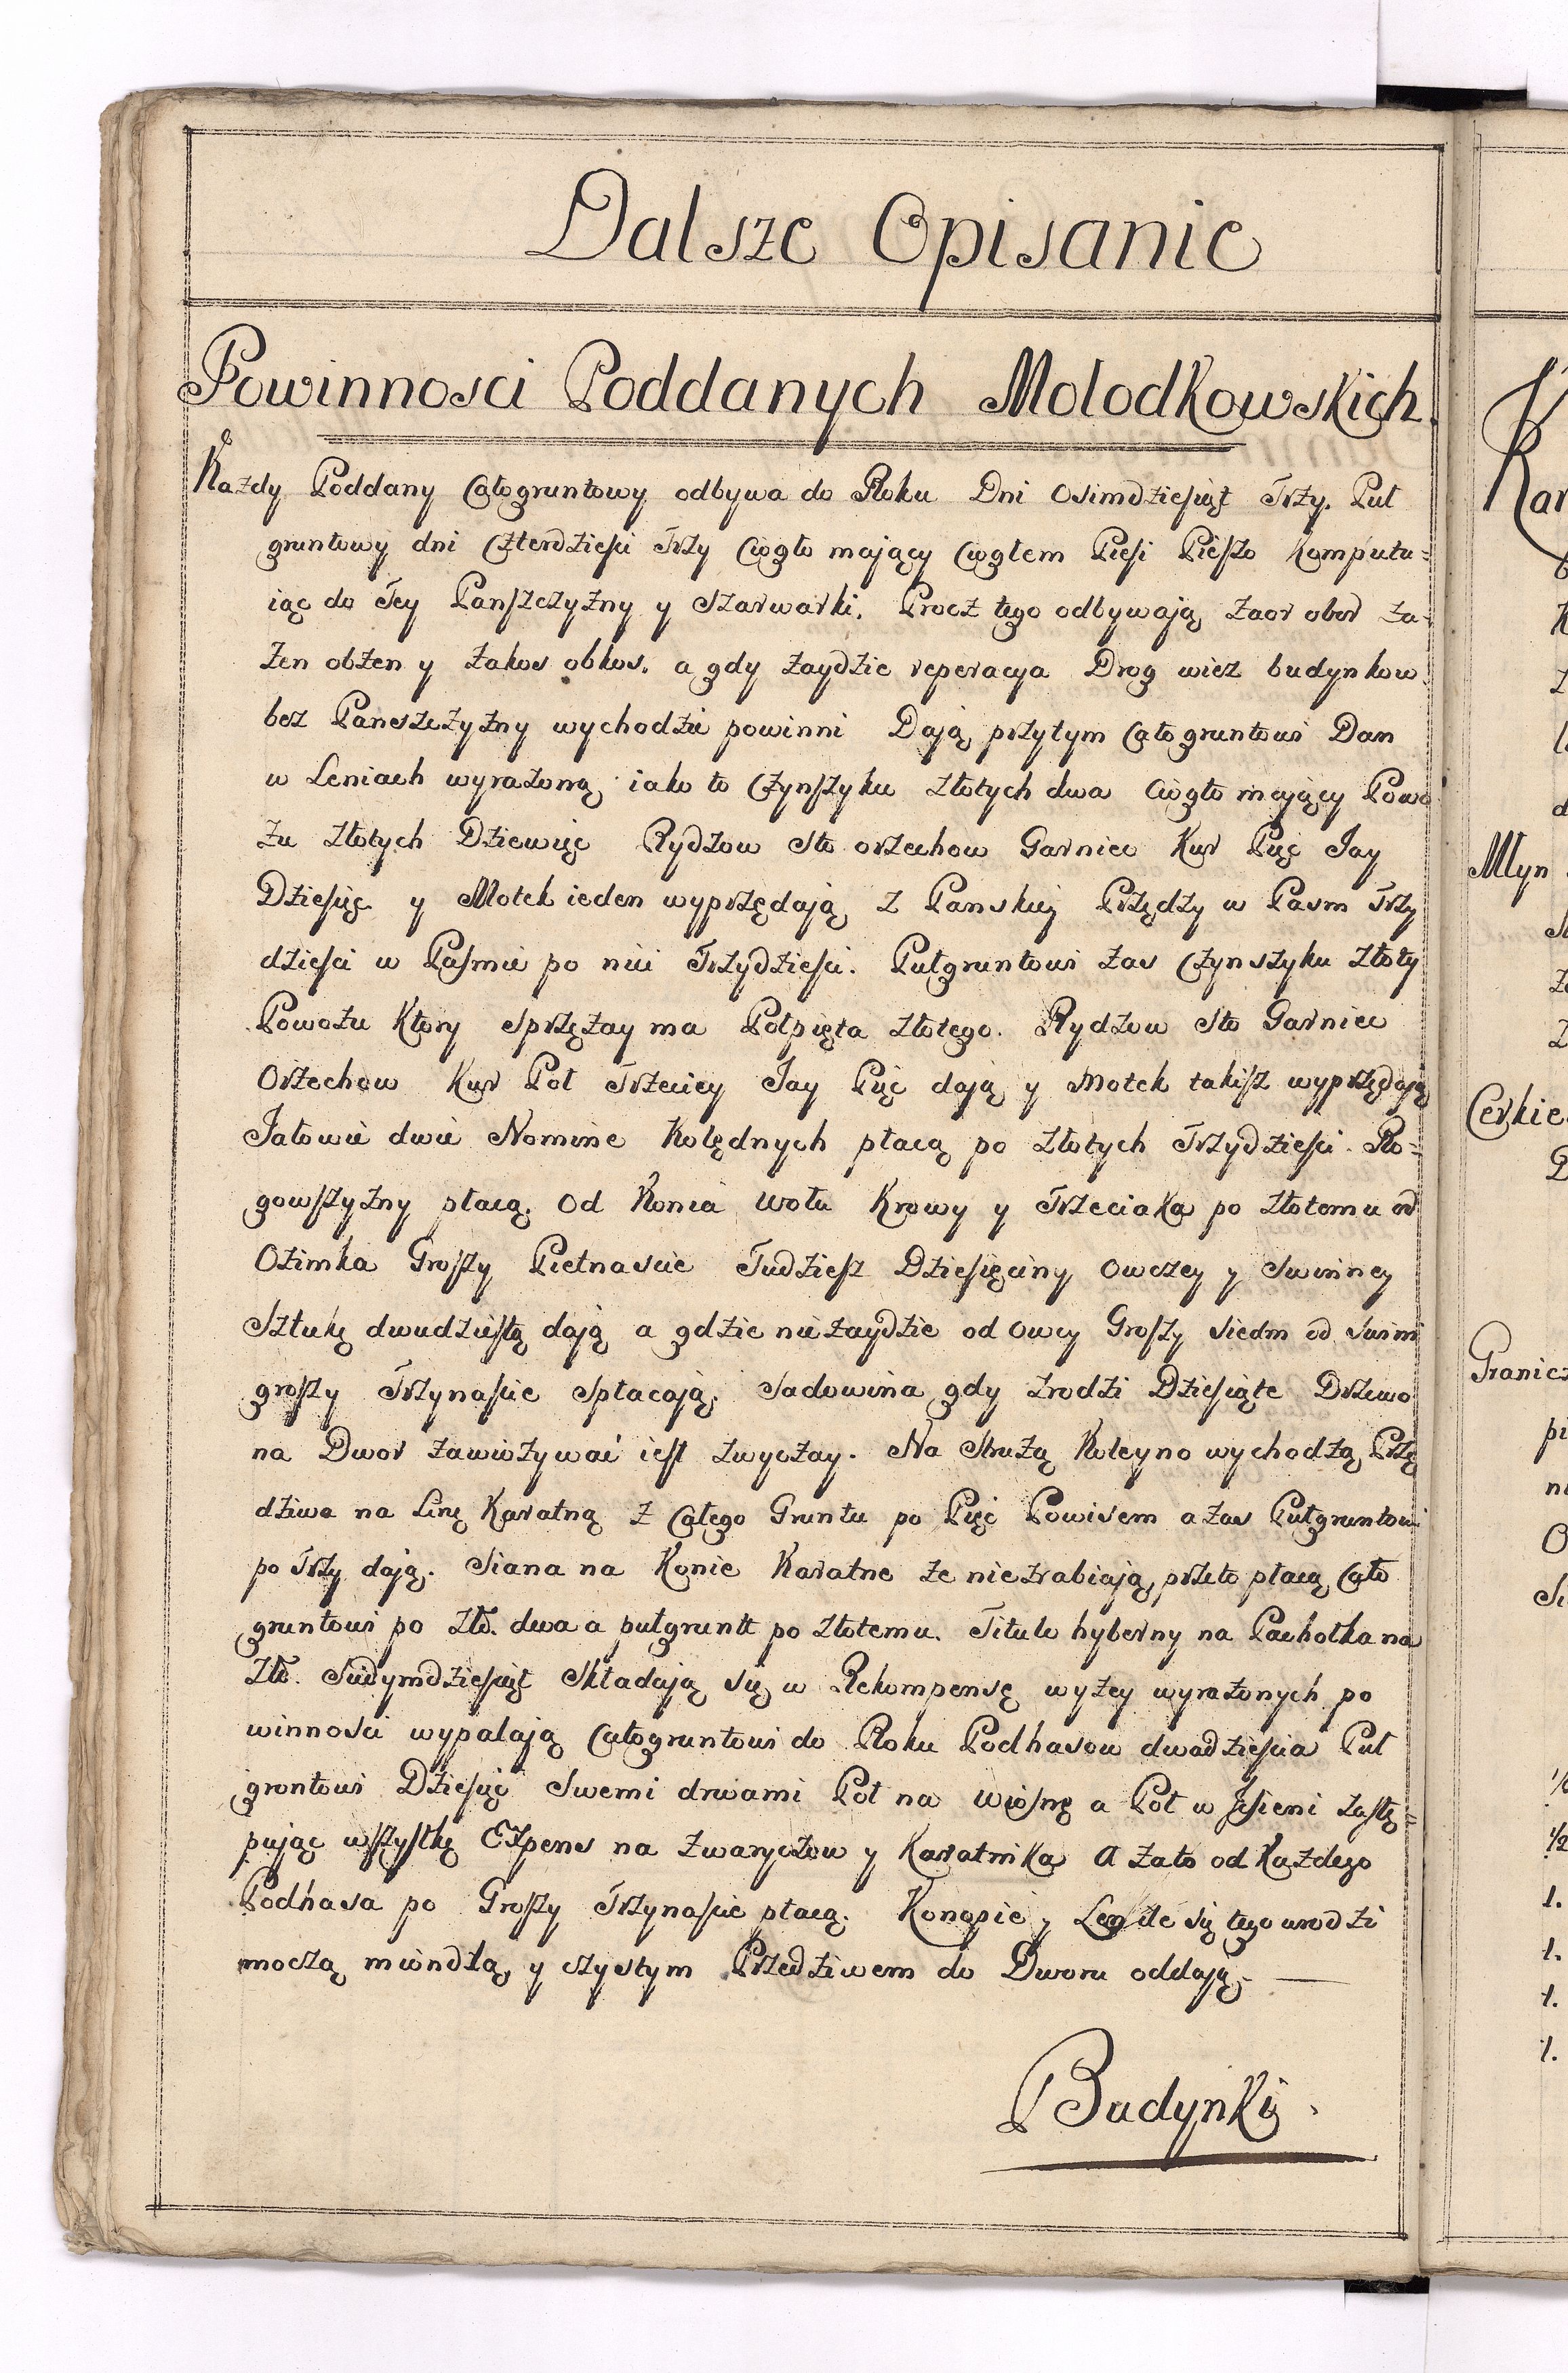 Dalsze Opisanie
Powinnosci Poddanych Molodkowskich.
Każdy Poddany Całogruntowy odbywa do Roku Dni Osimdziesiąt Trzy. Puł
gruntowy dni Czterdziesci Trzy Ciągło mający Ciągłem Piesi Pieszo Komputu=
iąc do Tey Panszczyzny y Szarwarki. Procz tego odbywają zaor obor za=
żen obżen y zakos obkos. a gdy zaydzie reperacya Drog wież budynkow
bez Panszczyzny wychodzić powinni Dają przytym Całogruntowi Dan
w Leniach wyrażoną iako to Czynszyku Złotych dwa Ciągło mający Powo
zu złotych Dziewięć Rydzow Sto orzechow Garniec Kur Pięć Jay
Dziesięć y Motek ieden wyprzędają z Panskiej Przędzy w Pasm Trzy
dziesci w Pasmie po nici Trzydziesci. Pułgruntowi zas Czynszyku Złoty
Powozu Ktory sprzężay ma Połpięta złotego. Rydzow Sto Garniec
Orzechow Kur Poł Trzeciey Jay Pięć dają y Motek takisz wyprzędają
Jałowic dwie Nomine Kolędnych płacą po złotych Trzydziesci. Ro=
gowszyzny płacą. Od Konia wołu Krowy y Trzeciaka po złotemu od
Ozimka Groszy Pietnascie Tudziesz Dziesięciny Owczey y Swinney
Sztukę dwudziestą dają a gdzie nie zaydzie od owcy Groszy siedm od swini
groszy Trzynascie Spłacają. Sadowina gdy zrodzi Dziesiąte Drzewo
na Dwor zawiązywać iest zwyczay. Na Strużą Koleyno wychodzą Przę
dziwa na Linę Karatną z Całego Gruntu po Pięć Powisem a zas Pułgruntowi
po Trzy dają. Siana na Konie Karatne ze nie zrabiają, przeto płacą Cało
gruntowi po Zło. dwa a pułgrunt po złotemu. Titulo hyberny na Pachołka na
Zło. Siedymdziesiąt Składają się w Rekompensę wyzey wyrażonych po
winnosci wypalają Całogruntowi do Roku Podhasow dwadziescia Puł
gruntowi Dziesięć Swemi drwami Poł na wiosnę a Poł w Jesieni zastę=
pując wszystkę Expens na zwaryczow y Karatnika A zato od Każdego
Podhasa po Groszy Trzynascie płacą. Konopie y Len ile się tego urodzi
moczą miondlą y czystym Przedziwem do Dworu oddają.
Budynki.